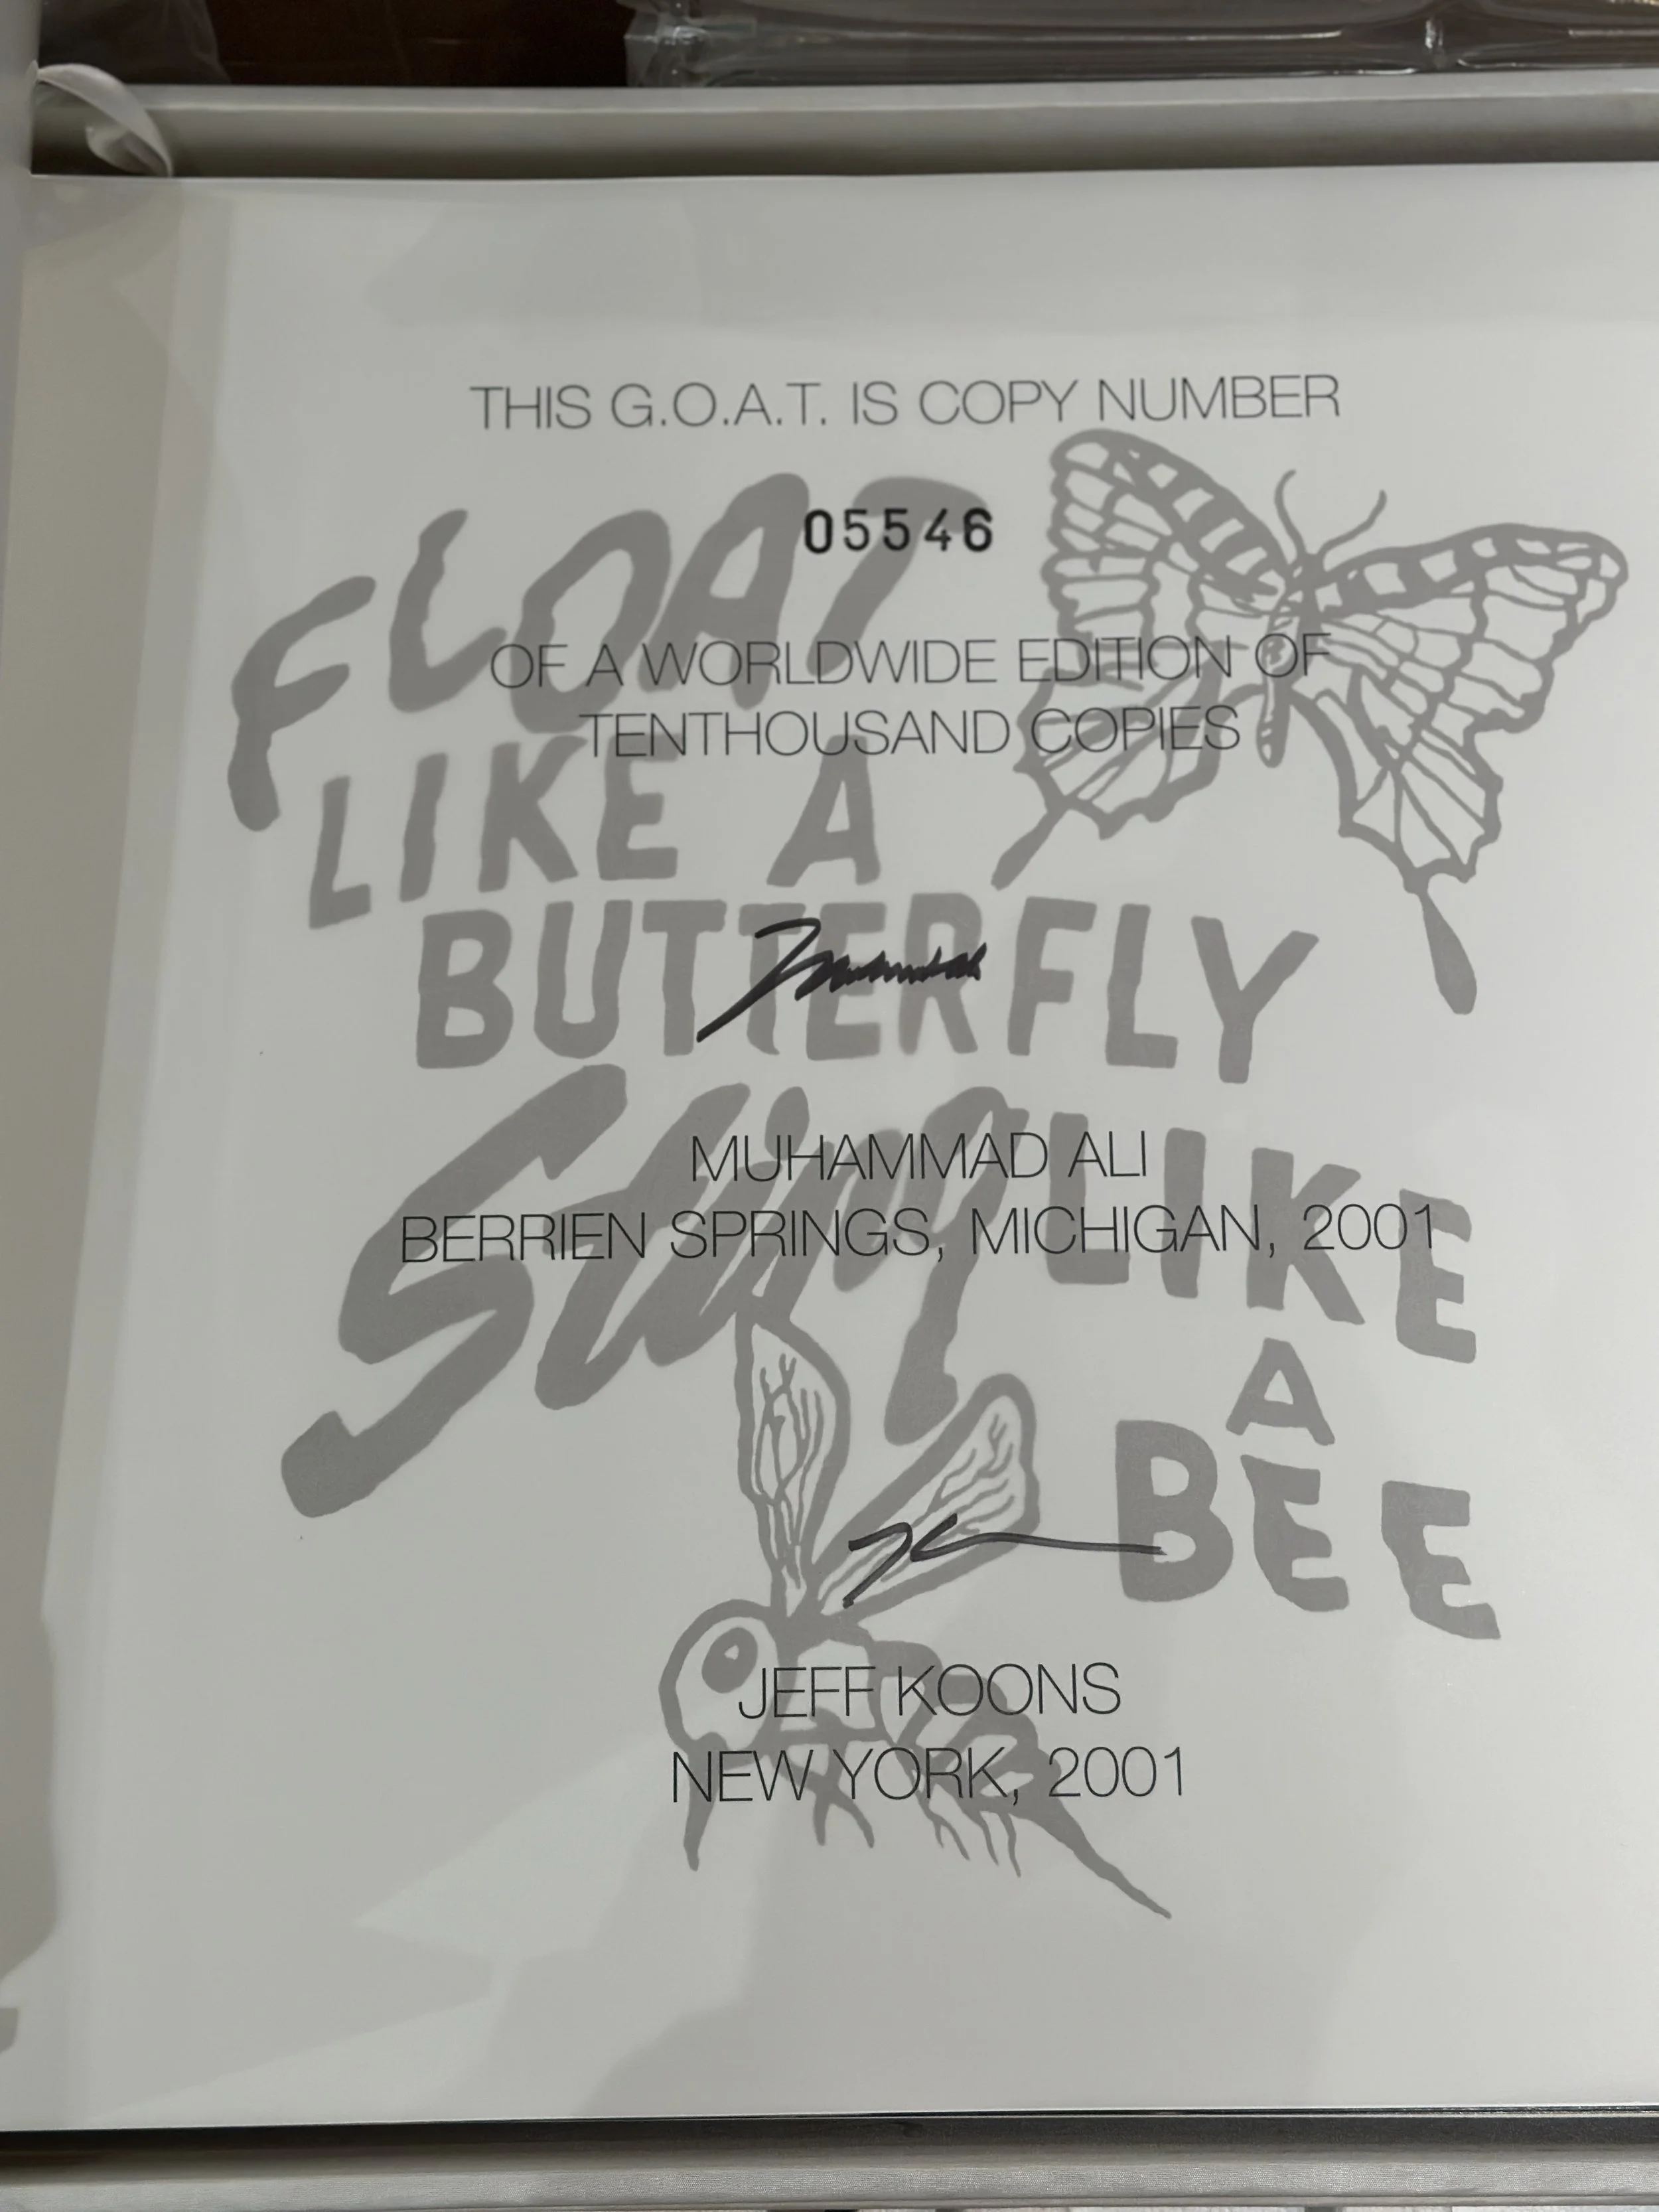 THIS G.O.A.T. IS COPY NUMBER
05546
OF A WORLDWIDE EDITION OF
TENTHOUSAND COPIES
FLOAT
LIKE A
BUTTERFLY
Sting LIKE
A
BEE
MUHAMMAD ALI
BERRIEN SPRINGS, MICHIGAN, 2001
JEFF KOONS
NEW YORK, 2001